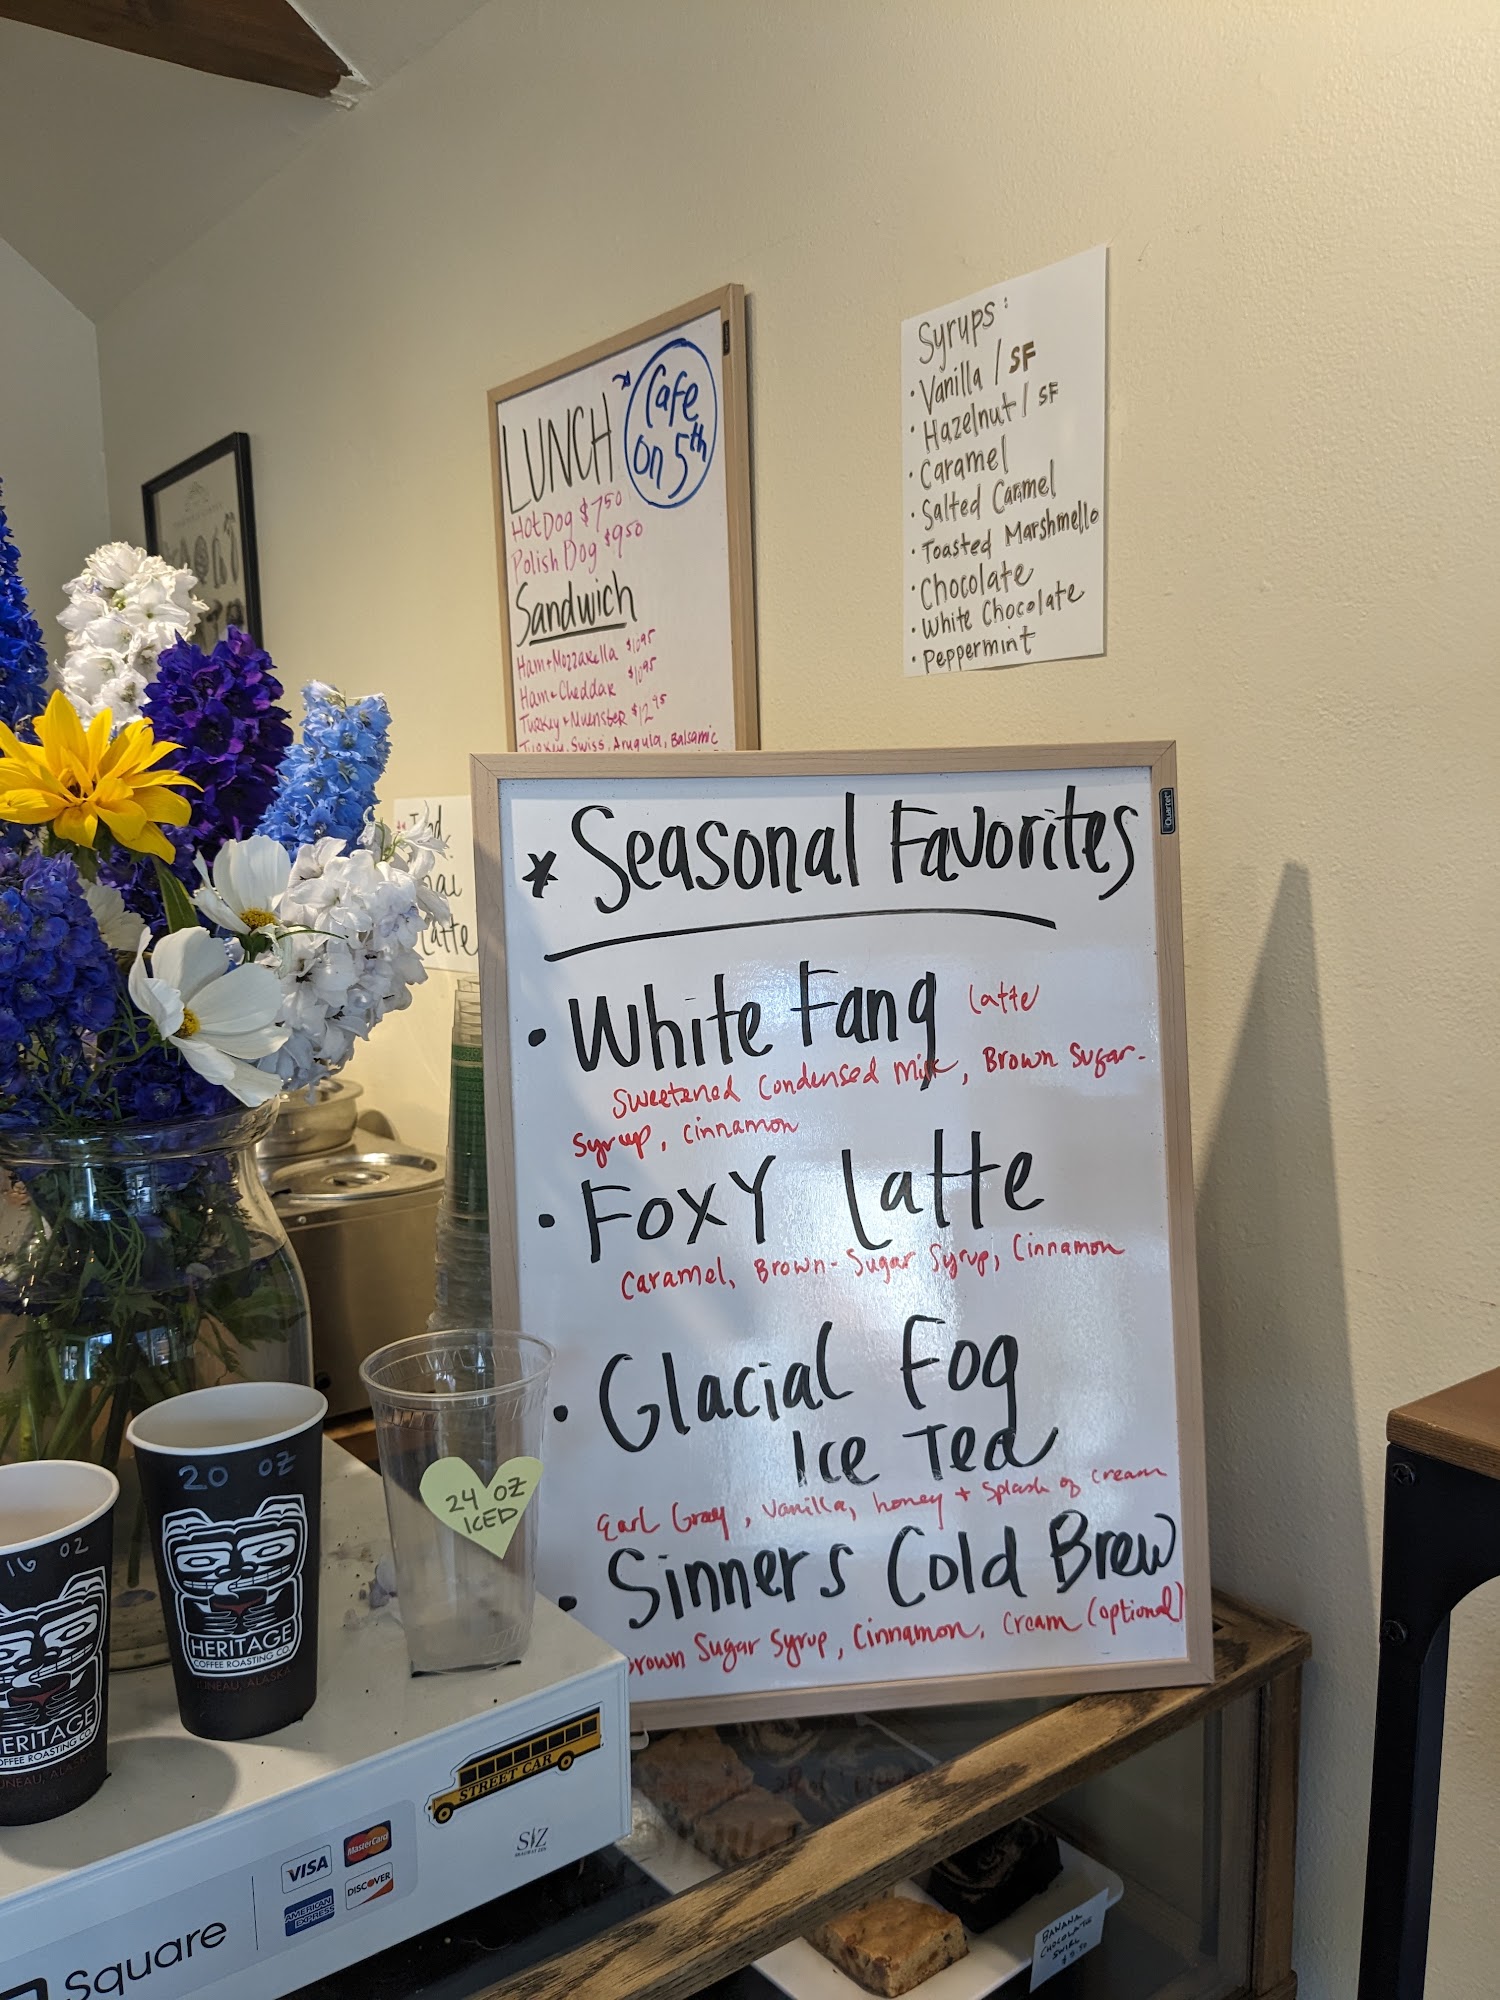 LUNCH
Cafe
on 5th
HotDog $7.50
Polish Dog $9.50
Sandwich
Ham + Mozzarella $10.95
Ham + Cheddar $10.95
Turkey + Muenster $12.95
Turkey, Swiss, Arugula, Balsamic
Syrups:
• Vanilla / SF
• Hazelnut / SF
• Caramel
• Salted Carmel
• Toasted Marshmello
• Chocolate
• White Chocolate
• Peppermint
Latte
* Seasonal Favorites
Quartet
• White Fang Latte
Sweetened Condensed Milk, Brown Sugar-
Syrup, Cinnamon
• Foxy Latte
Caramel, Brown-Sugar Syrup, Cinnamon
• Glacial Fog
Ice Tea
Earl Gray, Vanilla, honey + Splash of cream
• Sinners Cold Brew
Brown Sugar Syrup, Cinnamon, Cream (optional)
16 OZ
HERITAGE
COFFEE ROASTING CO.
JUNEAU, ALASKA
20 OZ
HERITAGE
COFFEE ROASTING CO.
JUNEAU, ALASKA
24 OZ
ICED
STREET CAR
SIZ
VISA
MasterCard
AMERICAN EXPRESS
DISCOVER
Square
BANANA
CHOCOLATE
SWIRL